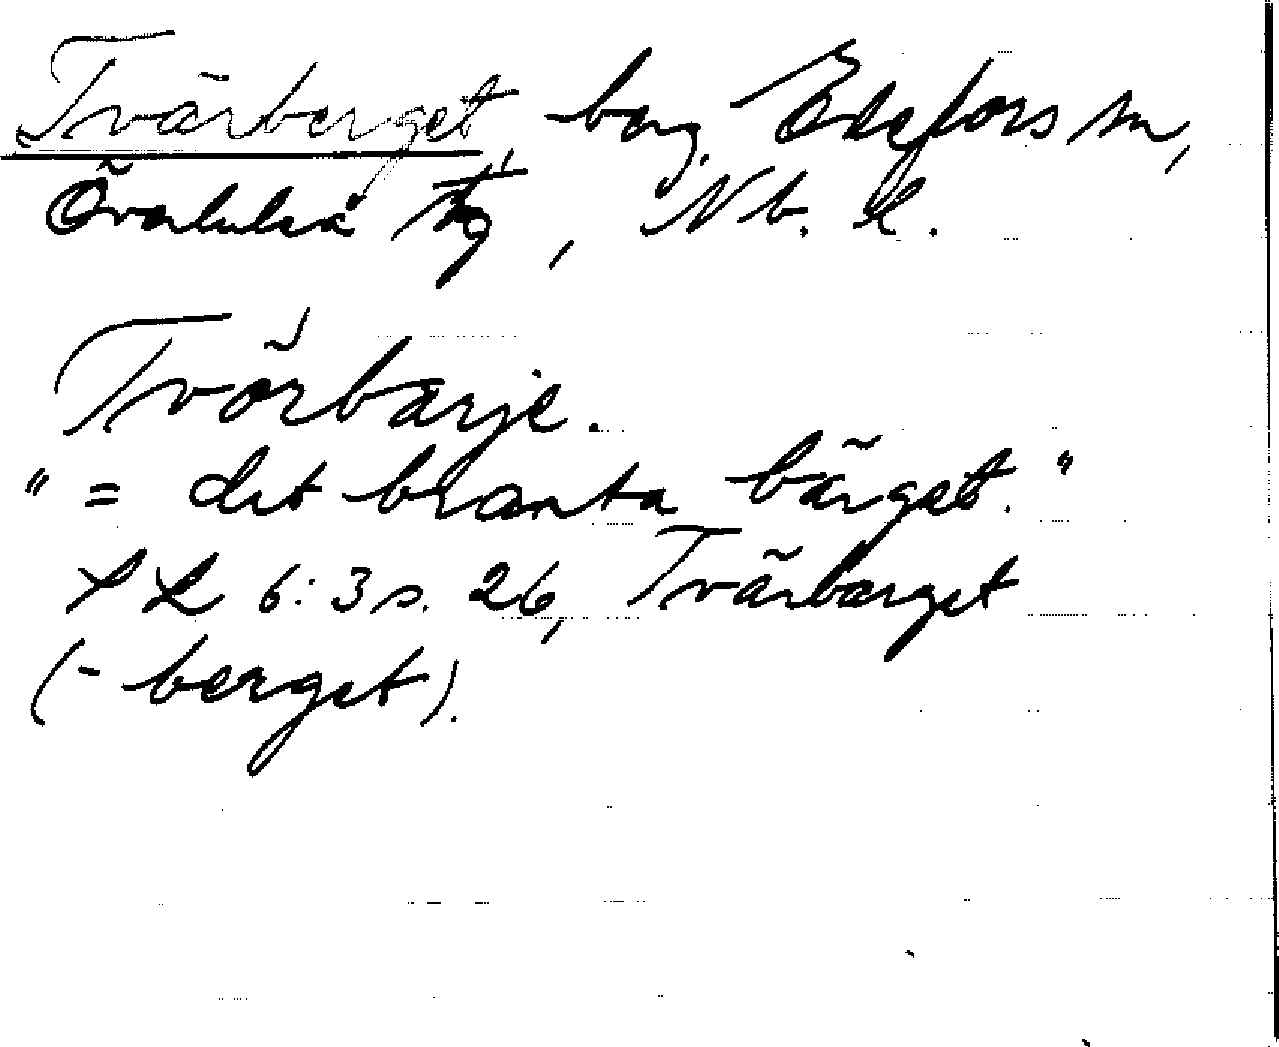 Tvärberget, berg, Edefors sn,
Överluleå tg, Nb. l.
Tvörbarje.
" = det branta bärget."
SL 6:3 s. 26, Tvärbärget
(- berget).